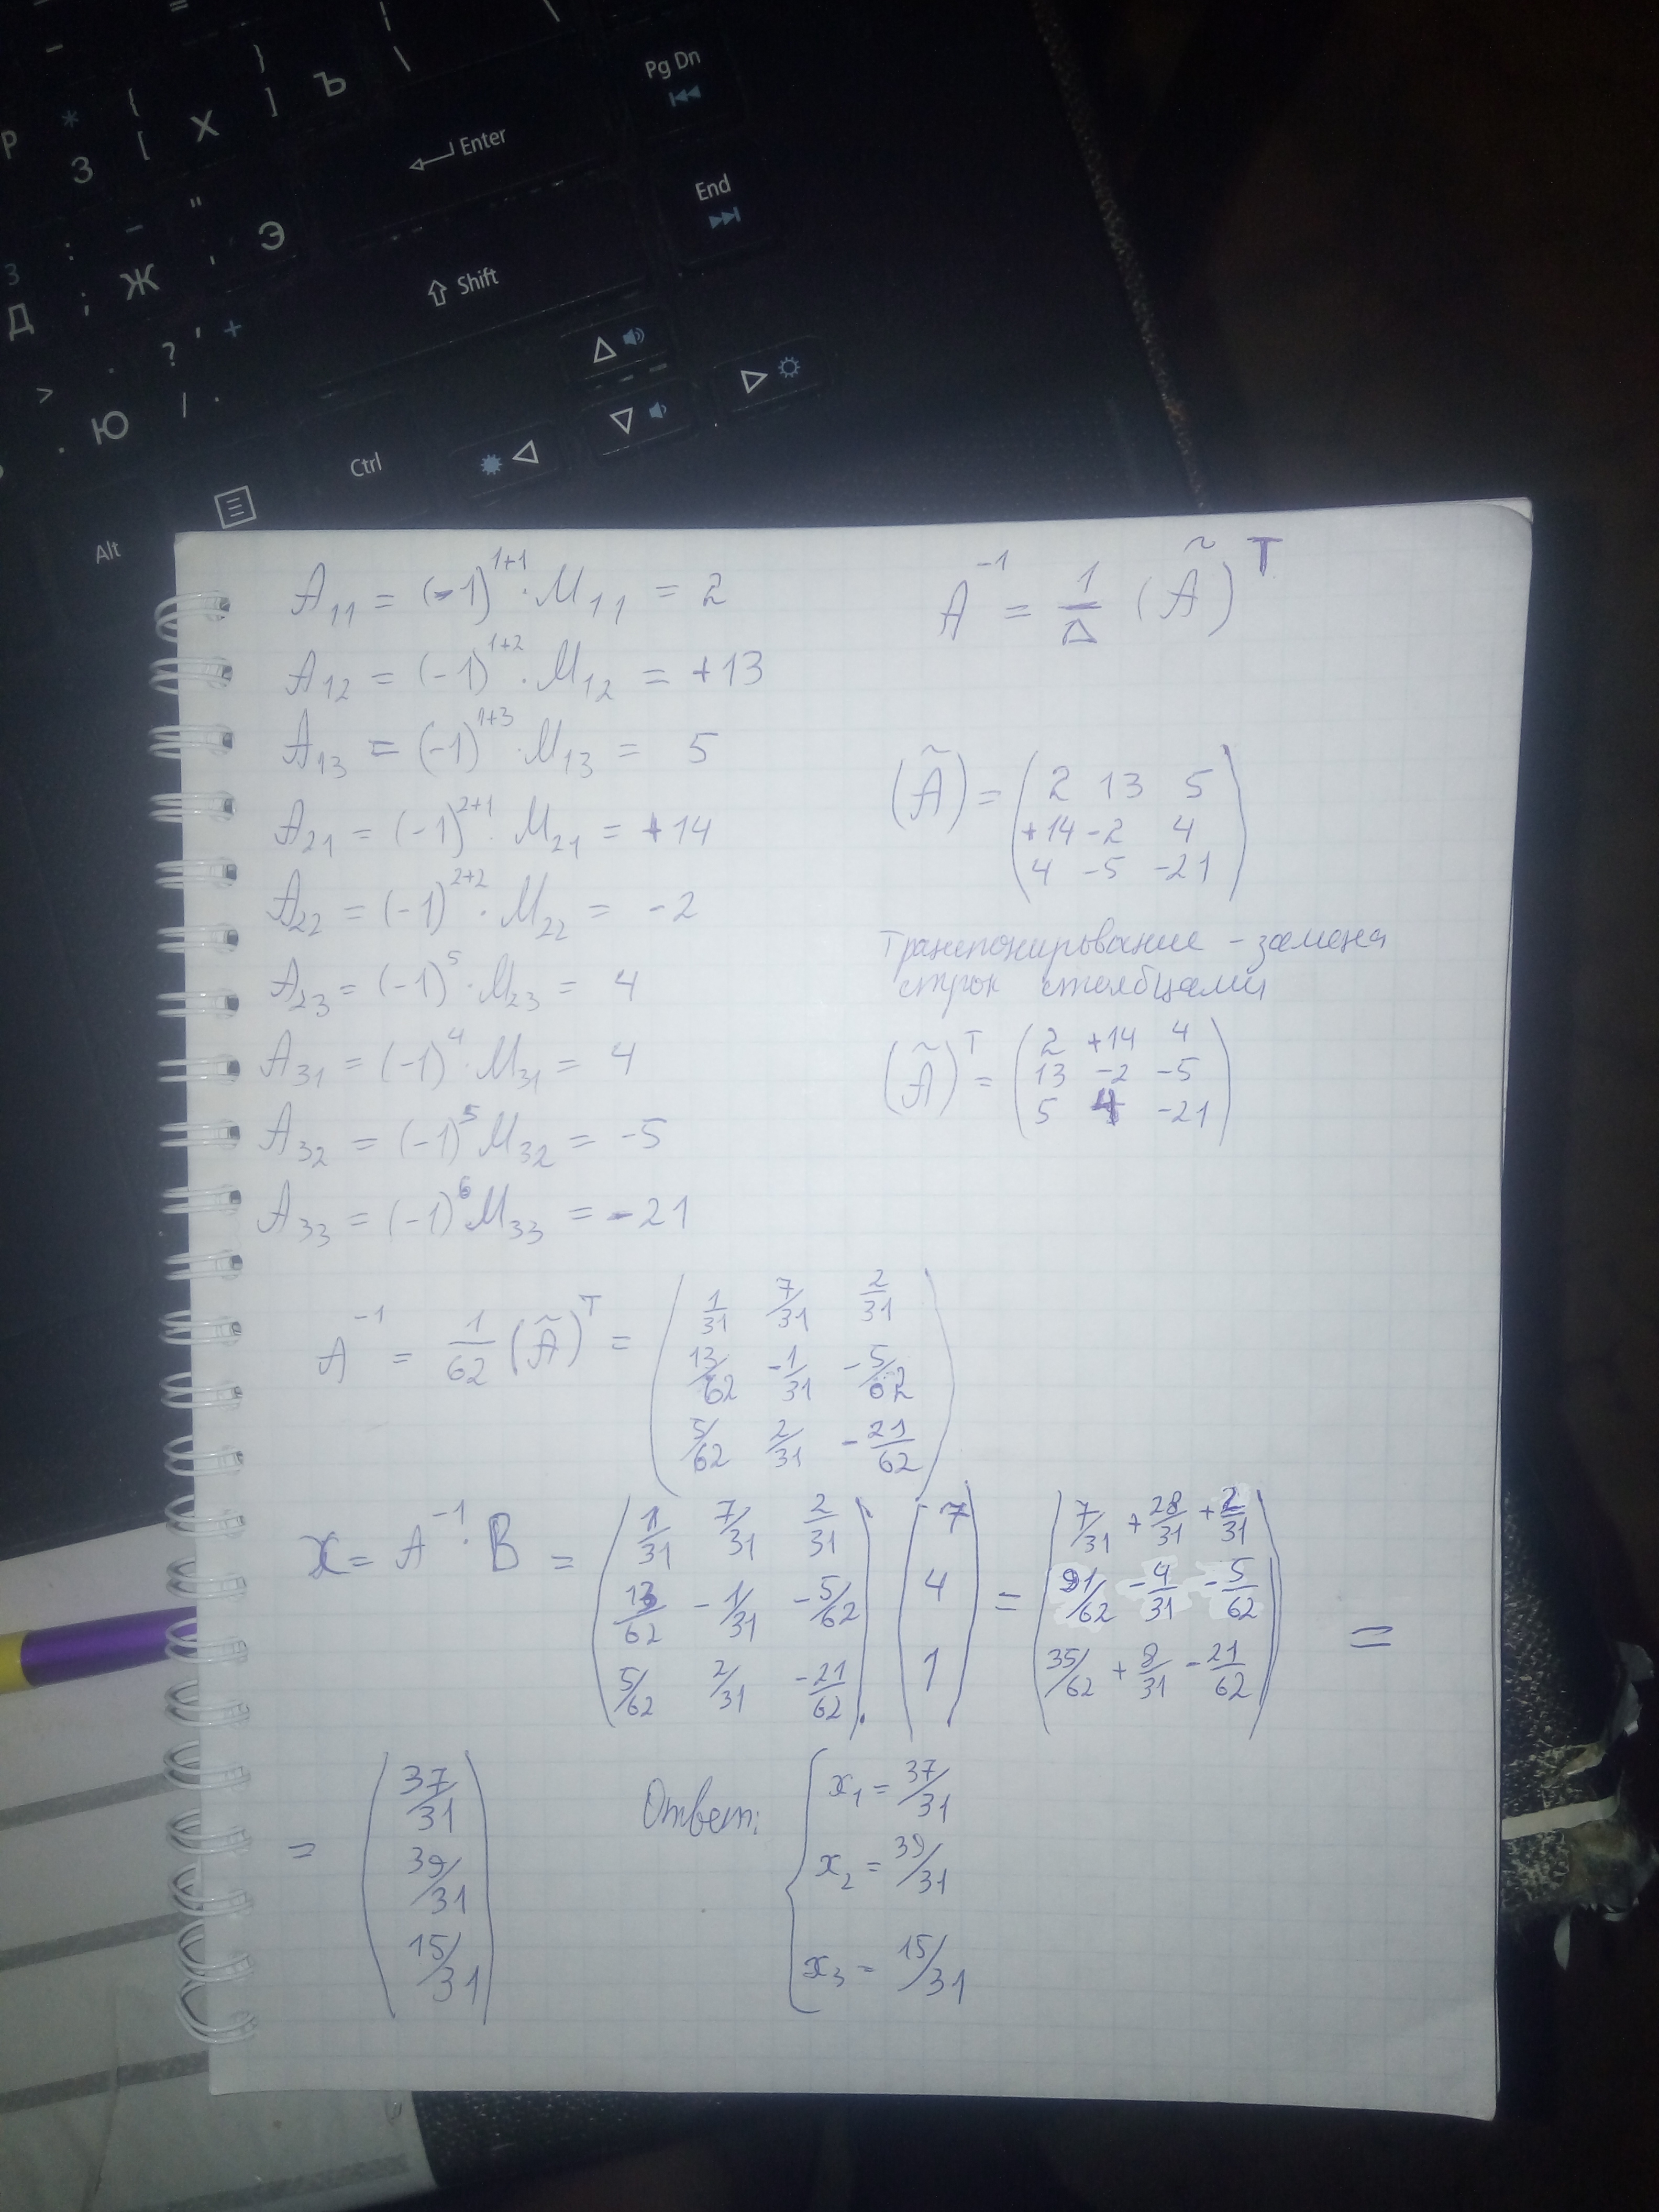 Pg Dn
* { } Ъ
Р З [ Х ] Enter
End
: " 
З Д ; Ж ' Э Shift
> . ? , +
Ю / .
Ctrl
Alt
A₁₁ = (-1)¹⁺¹ · M₁₁ = 2
A₁₂ = (-1)¹⁺² · M₁₂ = +13
A₁₃ = (-1)¹⁺³ · M₁₃ = 5
A₂₁ = (-1)²⁺¹ · M₂₁ = +14
A₂₂ = (-1)²⁺² · M₂₂ = -2
A₂₃ = (-1)⁵ · M₂₃ = 4
A₃₁ = (-1)⁴ · M₃₁ = 4
A₃₂ = (-1)⁵ M₃₂ = -5
A₃₃ = (-1)⁶ M₃₃ = -21
A⁻¹ = 1/Δ (Ã)ᵀ
(Ã) = ( 2 13 5
+14 -2 4
4 -5 -21 )
Транспонирование - замена
строк столбцами
(Ã)ᵀ = ( 2 +14 4
13 -2 -5
5 4 -21 )
A⁻¹ = 1/62 (Ã)ᵀ = ( 1/31 7/31 2/31
13/62 -1/31 -5/62
5/62 2/31 -21/62 )
X = A⁻¹ · B = ( 1/31 7/31 2/31 ) · ( 7 ) = ( 7/31 + 28/31 + 2/31 )
( 13/62 -1/31 -5/62 ) ( 4 ) ( 91/62 - 4/31 - 5/62 ) =
( 5/62 2/31 -21/62 ) ( 1 ) ( 35/62 + 8/31 - 21/62 )
= ( 37/31
39/31
15/31 )
Ответ: { x₁ = 37/31
x₂ = 39/31
x₃ = 15/31